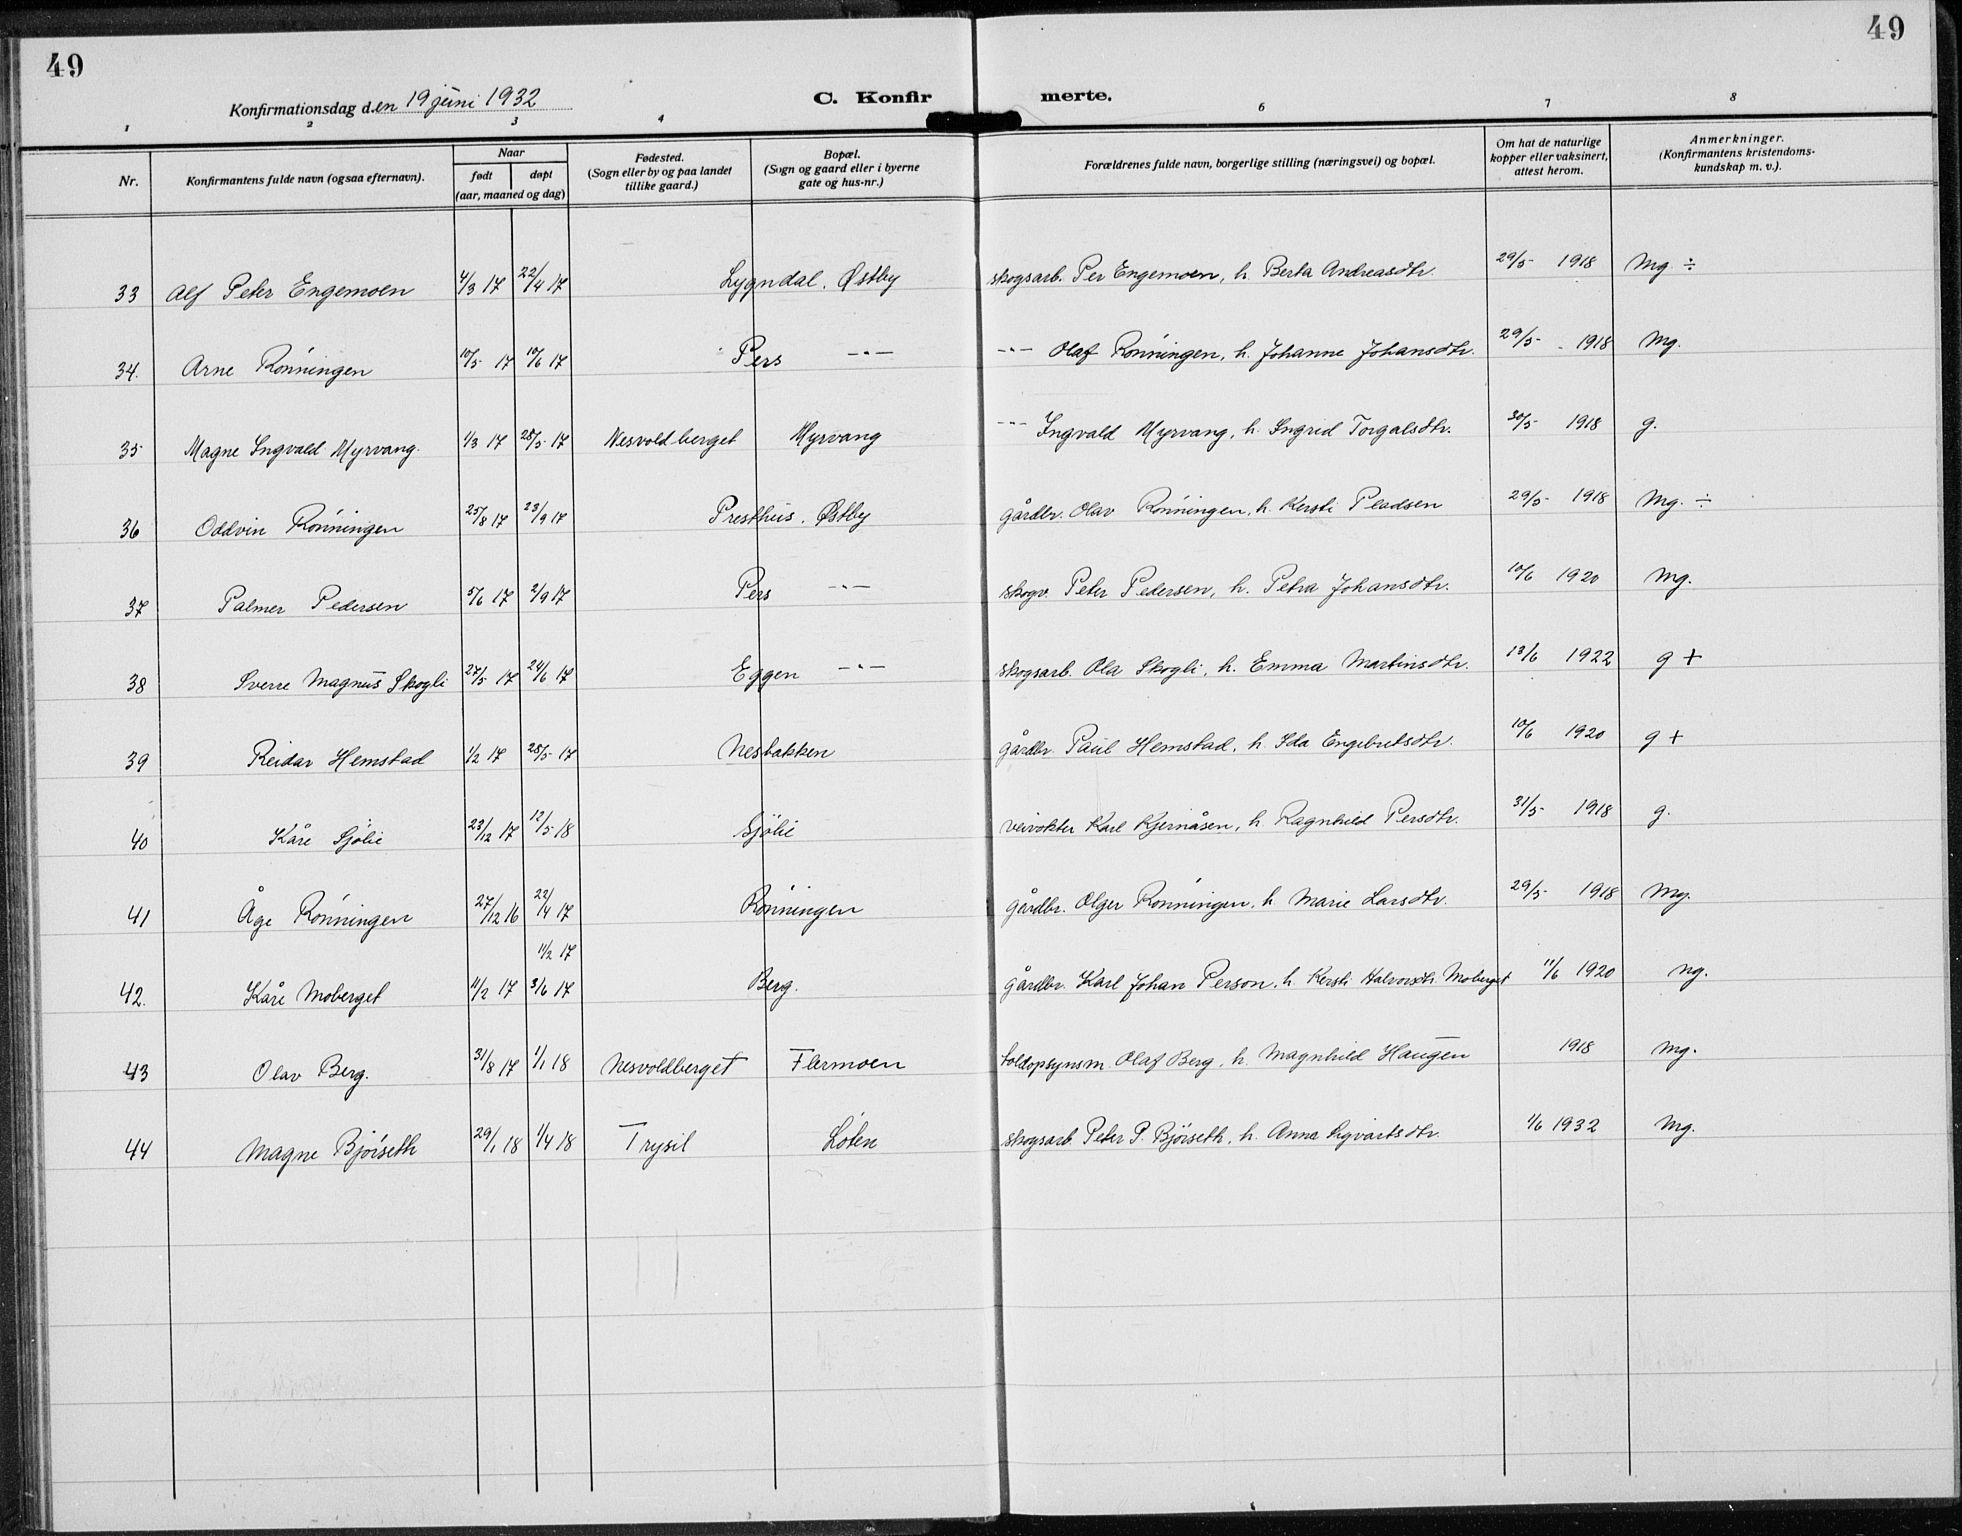 49
49
Konfirmationsdag den 19 juni 1932
C. Konfirmerte.
1 2 3 4 6 7 8
Nr. Konfirmantens fulde navn (ogsaa efternavn). Naar født døpt (aar, maaned og dag) Fødested. (Sogn eller by og paa landet tillike gaard.) Bopæl. (Sogn og gaard eller i byerne gate og hus-nr.) Forældrenes fulde navn, borgerlige stilling (næringsvei) og bopæl. Om hat de naturlige kopper eller vaksinert, attest herom. Anmerkninger. (Konfirmantens kristendoms-kundskap m. v.).
33 Alf Peter Engemoen 4/3 17 22/4 17 Lygndal, Østby skogsarb. Per Engemoen, h. Berta Andreasdtr. 29/5 1918 Mg ÷
34. Arne Rønningen 10/5 17 10/6 17 Pers -"- -"- Olaf Rønningen, h. Johanne Johansdtr. 29/5 - 1918 Mg.
35 Magne Ingvald Myrvang. 1/3 17 28/5 17 Nesvoldberget Myrvang -"- Ingvald Myrvang, h. Ingrid Torgalsdtr. 30/5 1918 g.
36 Oddvin Rønningen 25/8 17 23/9 17 Presthus, Østby gårdbr. Olav Rønningen, h. Kersti Pladsen 29/5 1918 Mg. ÷
37 Palmer Pedersen 5/6 17 2/9 17 Pers -"- skogv. Peter Pedersen, h. Petra Johansdtr. 10/6 1920 Mg.
38 Sverre Magnus Skogli 27/5 17 24/6 17 Eggen -"- skogsarb. Ola Skogli, h. Emma Martinsdtr. 13/6 1922 g +
39 Reidar Hemstad 1/2 17 28/5 17 Nesbakken gårdbr. Paul Hemstad, h. Ida Engebretsdtr. 10/6 1920 g +
40 Kåre Sjølie 23/12 17 12/5 18 Sjølie veivokter Karl Kjernåsen, h. Ragnhild Persdtr. 31/5 1918 g.
41 Åge Rønningen 27/12 16 22/4 17 Rønningen gårdbr. Olger Rønningen, h. Marie Larsdtr. 29/5 1918 Mg.
11/2 17
42. Kåre Moberget 11/2 17 3/6 17 Berg. gårdbr. Karl Johan Person, h. Kersti Halvorsdtr. Moberget 11/6 1920 ng.
43 Olav Berg. 31/8 17 1/1 18 Nesvoldberget Flermoen toldopsynsm. Olaf Berg, h. Magnhild Haugen 1918 Mg.
44 Magne Bjørseth 29/1 18 1/4 18 Trysil Løten skogsarb. Peter P. Bjørseth, h. Anna Sigvartsdtr. 1/6 1932 Mg.